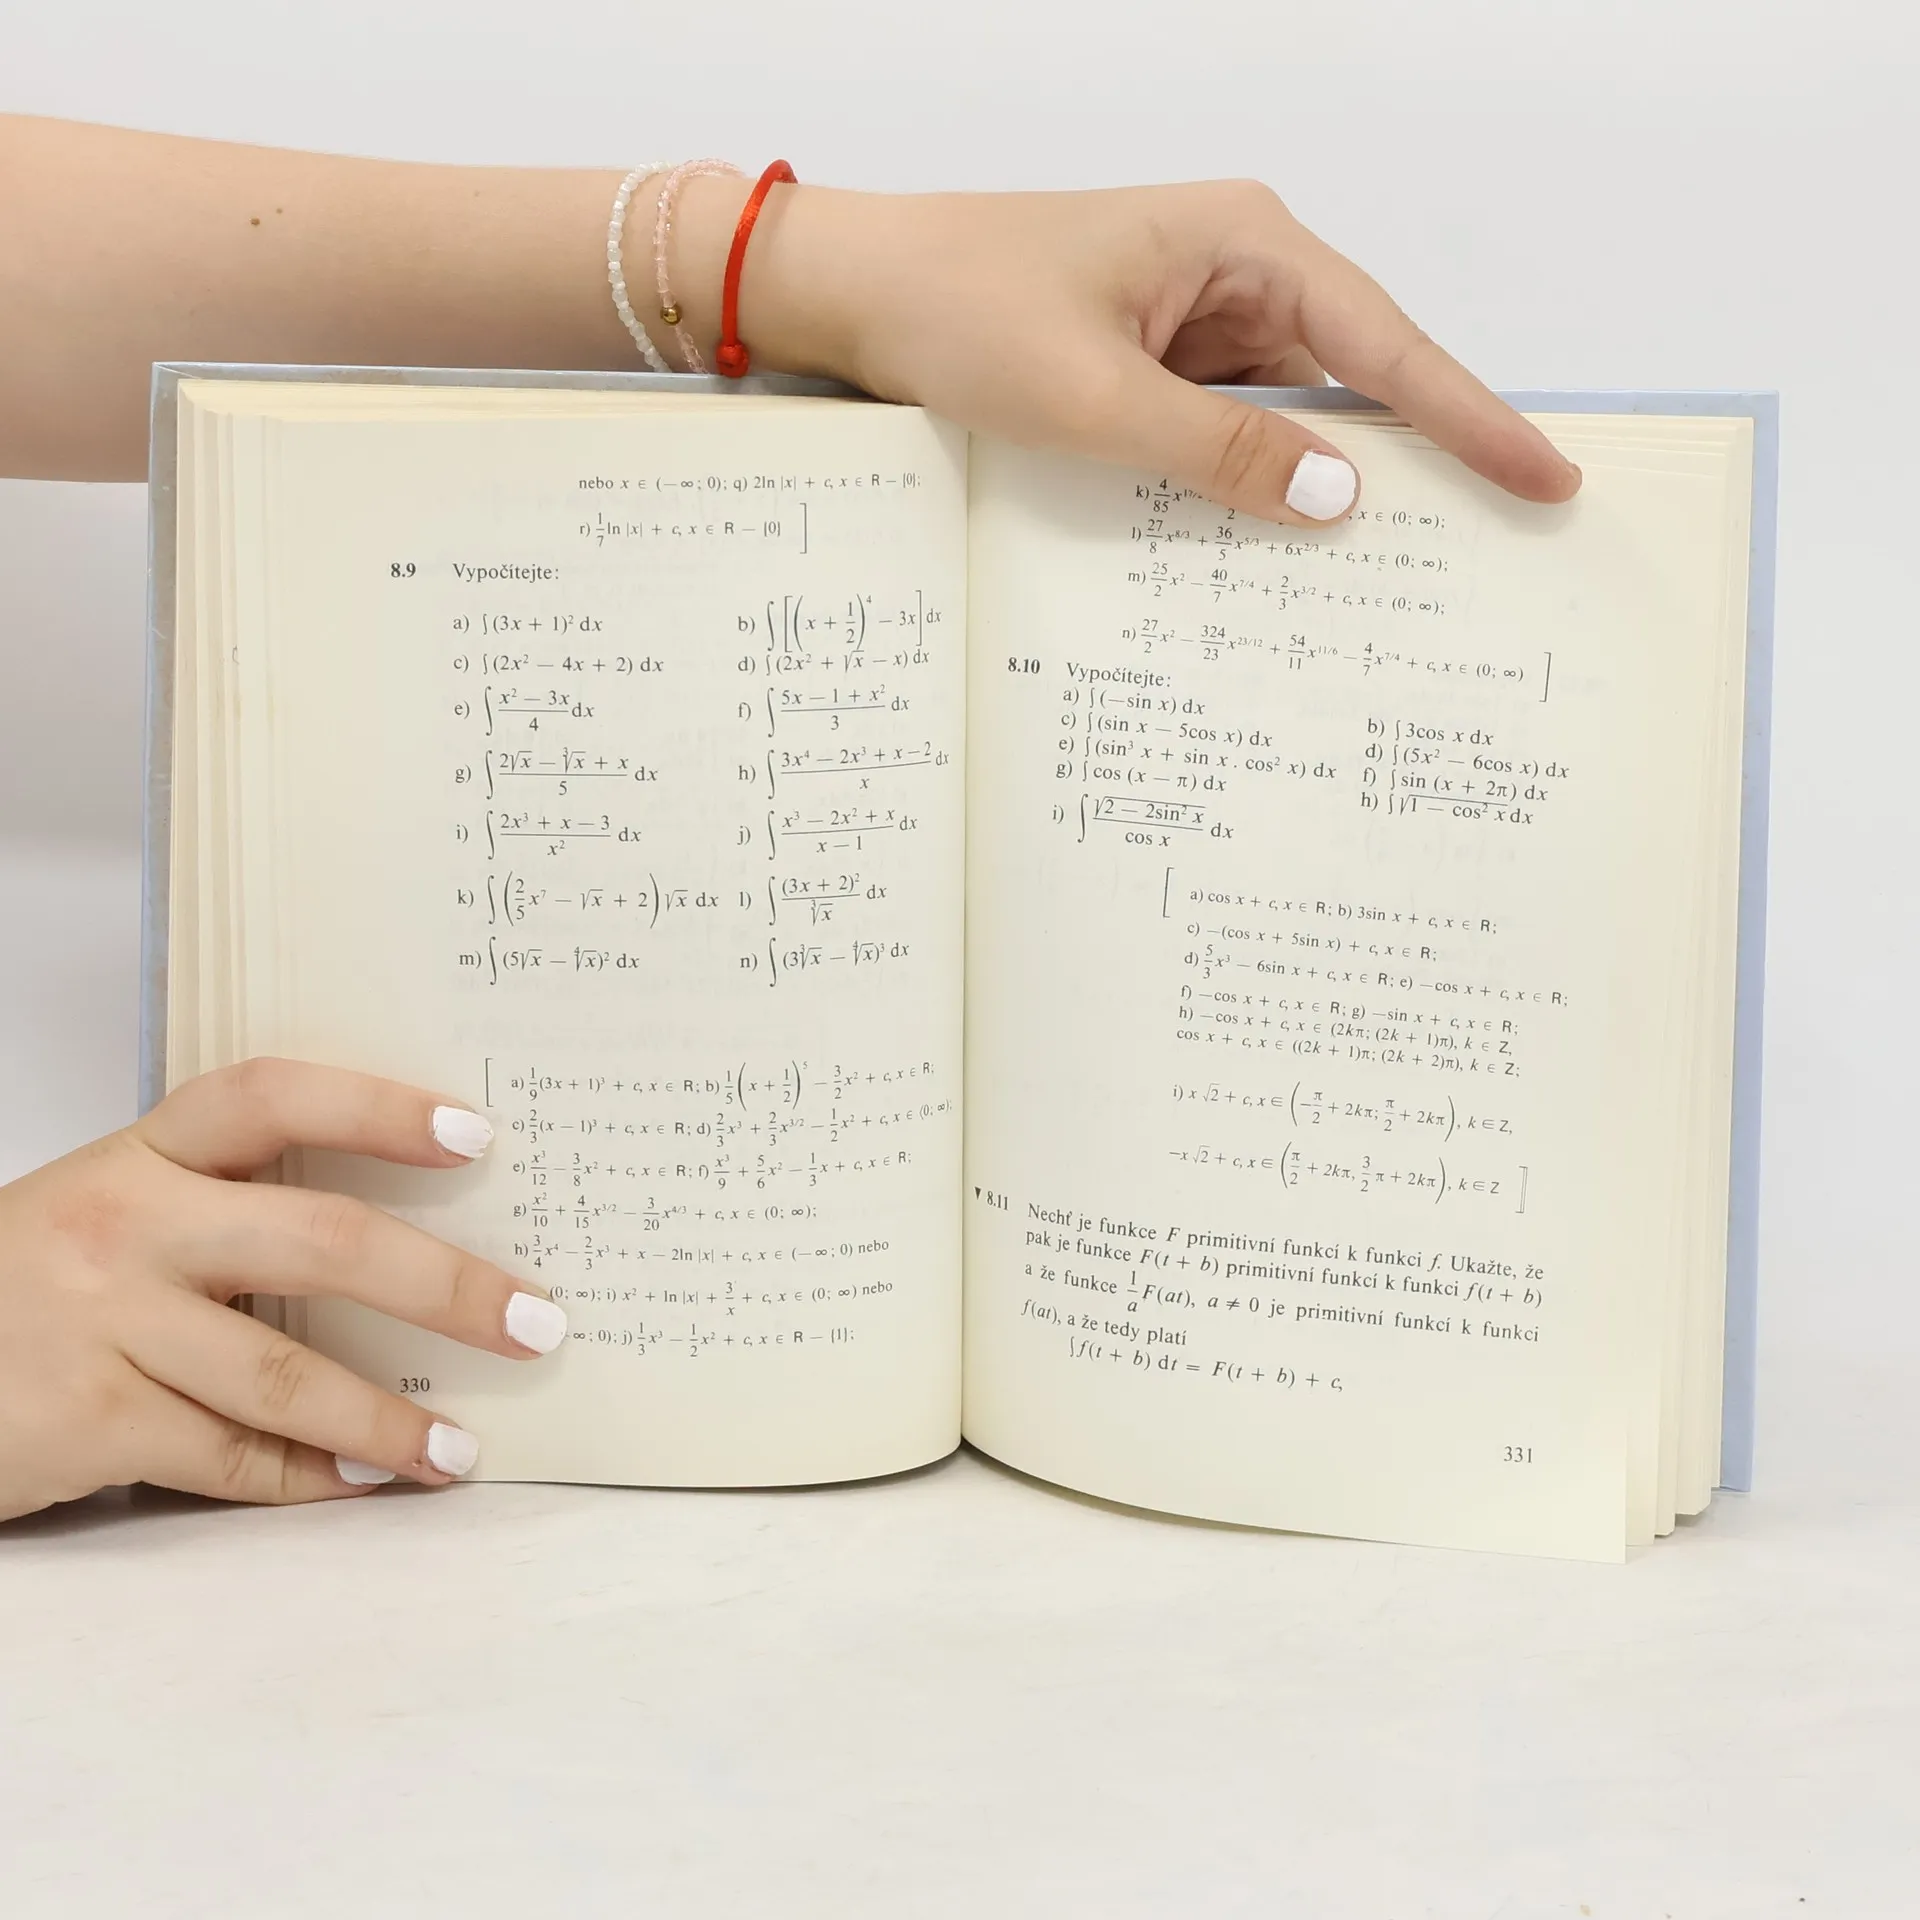 nebo x ∈ (−∞; 0); q) 2ln |x| + c, x ∈ R − {0};
r) 1/7 ln |x| + c, x ∈ R − {0} ]
8.9 Vypočítejte:
a) ∫(3x + 1)² dx b) ∫[(x + 1/2)⁴ − 3x] dx
c) ∫(2x² − 4x + 2) dx d) ∫(2x² + √x − x) dx
e) ∫ (x² − 3x)/4 dx f) ∫ (5x − 1 + x²)/3 dx
g) ∫ (2√x − ∛x + x)/5 dx h) ∫ (3x⁴ − 2x³ + x − 2)/x dx
i) ∫ (2x³ + x − 3)/x² dx j) ∫ (x³ − 2x² + x)/(x − 1) dx
k) ∫(2/5 x⁷ − √x + 2)√x dx l) ∫ (3x + 2)²/∛x dx
m) ∫(5√x − ∜x)² dx n) ∫(3∛x − ∜x)³ dx
[ a) 1/9 (3x + 1)³ + c, x ∈ R; b) 1/5 (x + 1/2)⁵ − 3/2 x² + c, x ∈ R;
c) 2/3 (x − 1)³ + c, x ∈ R; d) 2/3 x³ + 2/3 x^(3/2) − 1/2 x² + c, x ∈ ⟨0; ∞);
e) x³/12 − 3/8 x² + c, x ∈ R; f) x³/9 + 5/6 x² − 1/3 x + c, x ∈ R;
g) x²/10 + 4/15 x^(3/2) − 3/20 x^(4/3) + c, x ∈ (0; ∞);
h) 3/4 x⁴ − 2/3 x³ + x − 2ln |x| + c, x ∈ (−∞; 0) nebo
(0; ∞); i) x² + ln |x| + 3/x + c, x ∈ (0; ∞) nebo
∞; 0); j) 1/3 x³ − 1/2 x² + c, x ∈ R − {1};
330
k) 4/85 x^(17/2) , x ∈ (0; ∞);
l) 27/8 x^(8/3) + 36/5 x^(5/3) + 6x^(2/3) + c, x ∈ (0; ∞);
m) 25/2 x² − 40/7 x^(7/4) + 2/3 x^(3/2) + c, x ∈ (0; ∞);
n) 27/2 x² − 324/23 x^(23/12) + 54/11 x^(11/6) − 4/7 x^(7/4) + c, x ∈ (0; ∞) ]
8.10 Vypočítejte:
a) ∫(−sin x) dx b) ∫3cos x dx
c) ∫(sin x − 5cos x) dx d) ∫(5x² − 6cos x) dx
e) ∫(sin³ x + sin x . cos² x) dx f) ∫sin (x + 2π) dx
g) ∫cos (x − π) dx h) ∫√(1 − cos² x) dx
i) ∫ √(2 − 2sin² x)/cos x dx
[ a) cos x + c, x ∈ R; b) 3sin x + c, x ∈ R;
c) −(cos x + 5sin x) + c, x ∈ R;
d) 5/3 x³ − 6sin x + c, x ∈ R; e) −cos x + c, x ∈ R;
f) −cos x + c, x ∈ R; g) −sin x + c, x ∈ R;
h) −cos x + c, x ∈ (2kπ; (2k + 1)π), k ∈ Z,
cos x + c, x ∈ ((2k + 1)π; (2k + 2)π), k ∈ Z;
i) x √2 + c, x ∈ (−π/2 + 2kπ; π/2 + 2kπ), k ∈ Z,
−x √2 + c, x ∈ (π/2 + 2kπ, 3/2 π + 2kπ), k ∈ Z ]
▼ 8.11 Nechť je funkce F primitivní funkcí k funkci f. Ukažte, že
pak je funkce F(t + b) primitivní funkcí k funkci f(t + b)
a že funkce 1/a F(at), a ≠ 0 je primitivní funkcí k funkci
f(at), a že tedy platí
∫f(t + b) dt = F(t + b) + c,
331